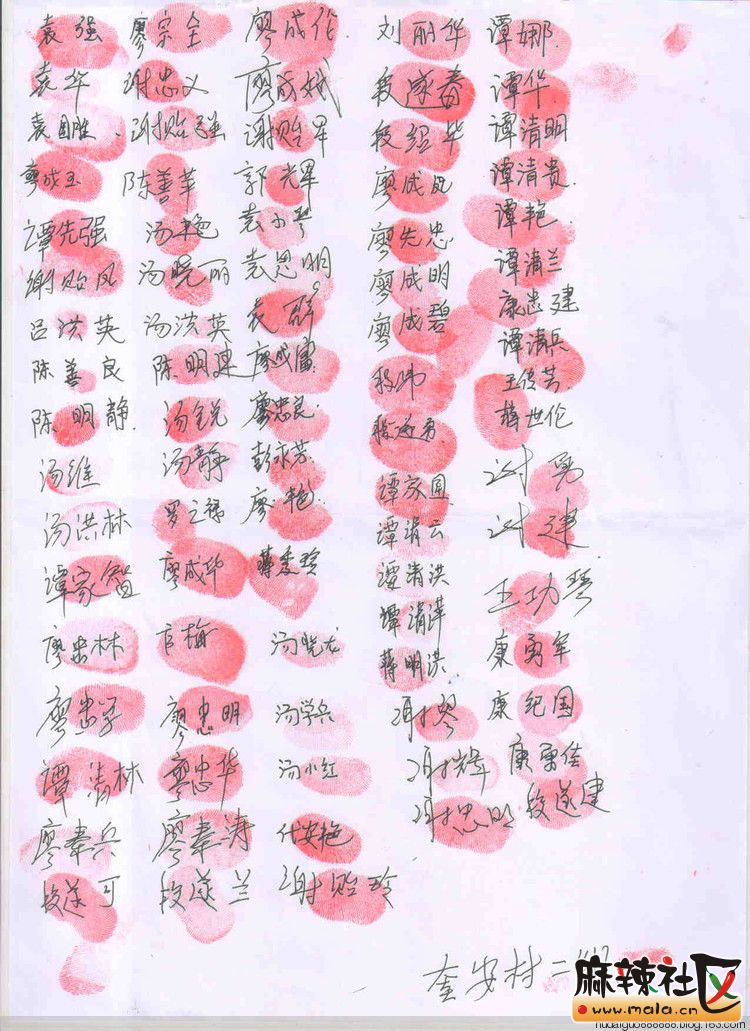 袁强 廖宗全 廖成伦 刘丽华 谭娜
袁华 谢忠义 廖成娥 段遂春 谭华
袁国胜 谢贻强 谢贻军 段绍华 谭清明
廖成玉 陈善革 郭光军 廖成凤 谭清贵
谭先强 汤艳 袁小琴 廖先忠 谭艳
谢贻凤 汤晓丽 袁思明 廖成明 谭清兰
吕洪英 汤洪英 袁群 廖成碧 康忠建
陈善良 陈明建 廖成富 谭清兵
陈明静 汤锐 廖忠良 王传芳
汤维 汤静 彭永芳 蒋世伦
汤洪林 罗之禄 廖艳 谭家圆 谢勇
谭家智 廖成华 蒋爱玲 谭清云 谢建
廖忠林 官梅 汤晓龙 谭清洪 王功琴
廖忠学 廖忠明 汤学兵 谭清萍 康勇军
谭清林 廖忠华 汤小红 蒋明洪 康纪国
廖奉兵 廖奉涛 代安艳 谢琴 康勇佳
段遂可 段遂兰 谢贻玲 谢辉 段遂建
谢思明
奎安村二
麻辣社区
www.mala.cn
hudaiguo888888.blog.163.com